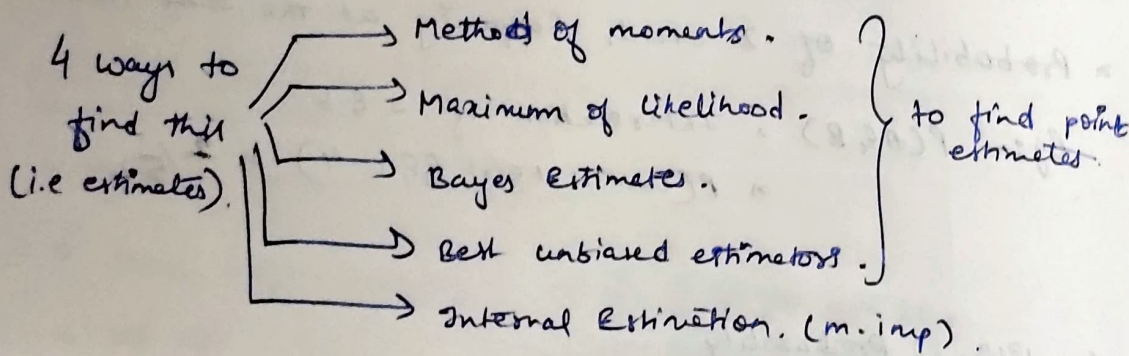 4 ways to
find this
(i.e estimates).
Methods of moments.
Maximum of likelihood.
Bayes Estimates.
Best unbiased estimators.
Internal Estimation. (m.imp)
to find point
estimates.